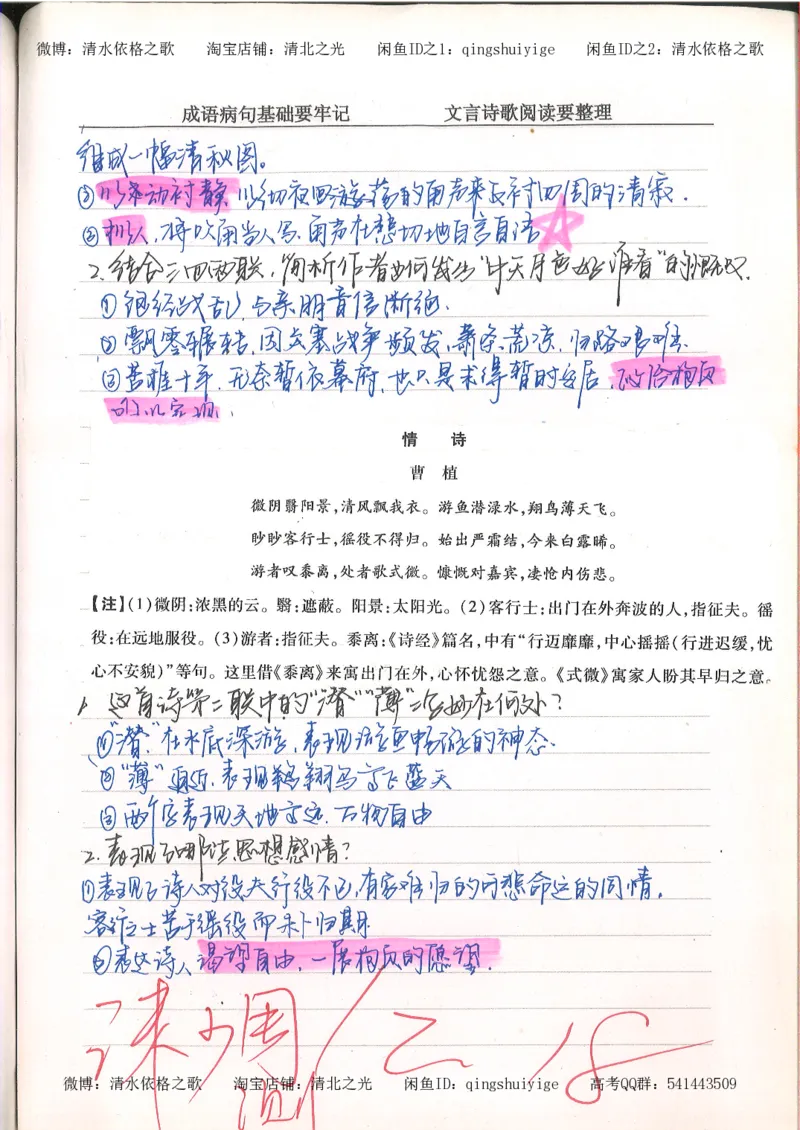 微博：清水依格之歌 淘宝店铺：清北之光 闲鱼ID之1：qingshuiyige 闲鱼ID之2：清水依格之歌
成语病句基础要牢记 文言诗歌阅读要整理
组成一幅清秋图。
③以动衬静，以彻夜四处游荡的角声来反衬四周的清寂．
④拟人，将以角当人写，角声在悲切地自言自语
2．结合三四两联，简析作者如何发出“中天月色好谁看”的慨叹．
①饱经战乱，与亲朋音信断绝．
②飘零辗转，因关塞战争频发，萧条荒凉，归路艰难．
③苦难十年，无奈暂依幕府，也只是求得暂时安居，政治抱负
可以实现．
情 诗
曹 植
微阴翳阳景，清风飘我衣。游鱼潜渌水，翔鸟薄天飞。
眇眇客行士，徭役不得归。始出严霜结，今来白露晞。
游者叹黍离，处者歌式微。慷慨对嘉宾，凄怆内伤悲。
【注】（1）微阴：浓黑的云。翳：遮蔽。阳景：太阳光。（2）客行士：出门在外奔波的人，指征夫。徭
役：在远地服役。（3）游者：指征夫。黍离：《诗经》篇名，中有“行迈靡靡，中心摇摇（行进迟缓，忧
心不安貌）”等句。这里借《黍离》来寓出门在外，心怀忧怨之意。《式微》寓家人盼其早归之意。
1．这首诗第二联中的“潜”“薄”二字妙在何处？
①“潜”在水底深游，表现游鱼畅游的神态．
②“薄”逼近，表现翔鸟高飞蓝天
③两个字表现天地高远，万物自由
2．表现了哪些思想感情？
①表现了诗人对役夫行役不已，有家难归的可悲命运的同情，
客行之士苦于徭役而未卜归期
②表达诗人渴望自由，一展抱负的愿望．
微博：清水依格之歌 淘宝店铺：清北之光 闲鱼ID：qingshuiyige 高考QQ群：541443509